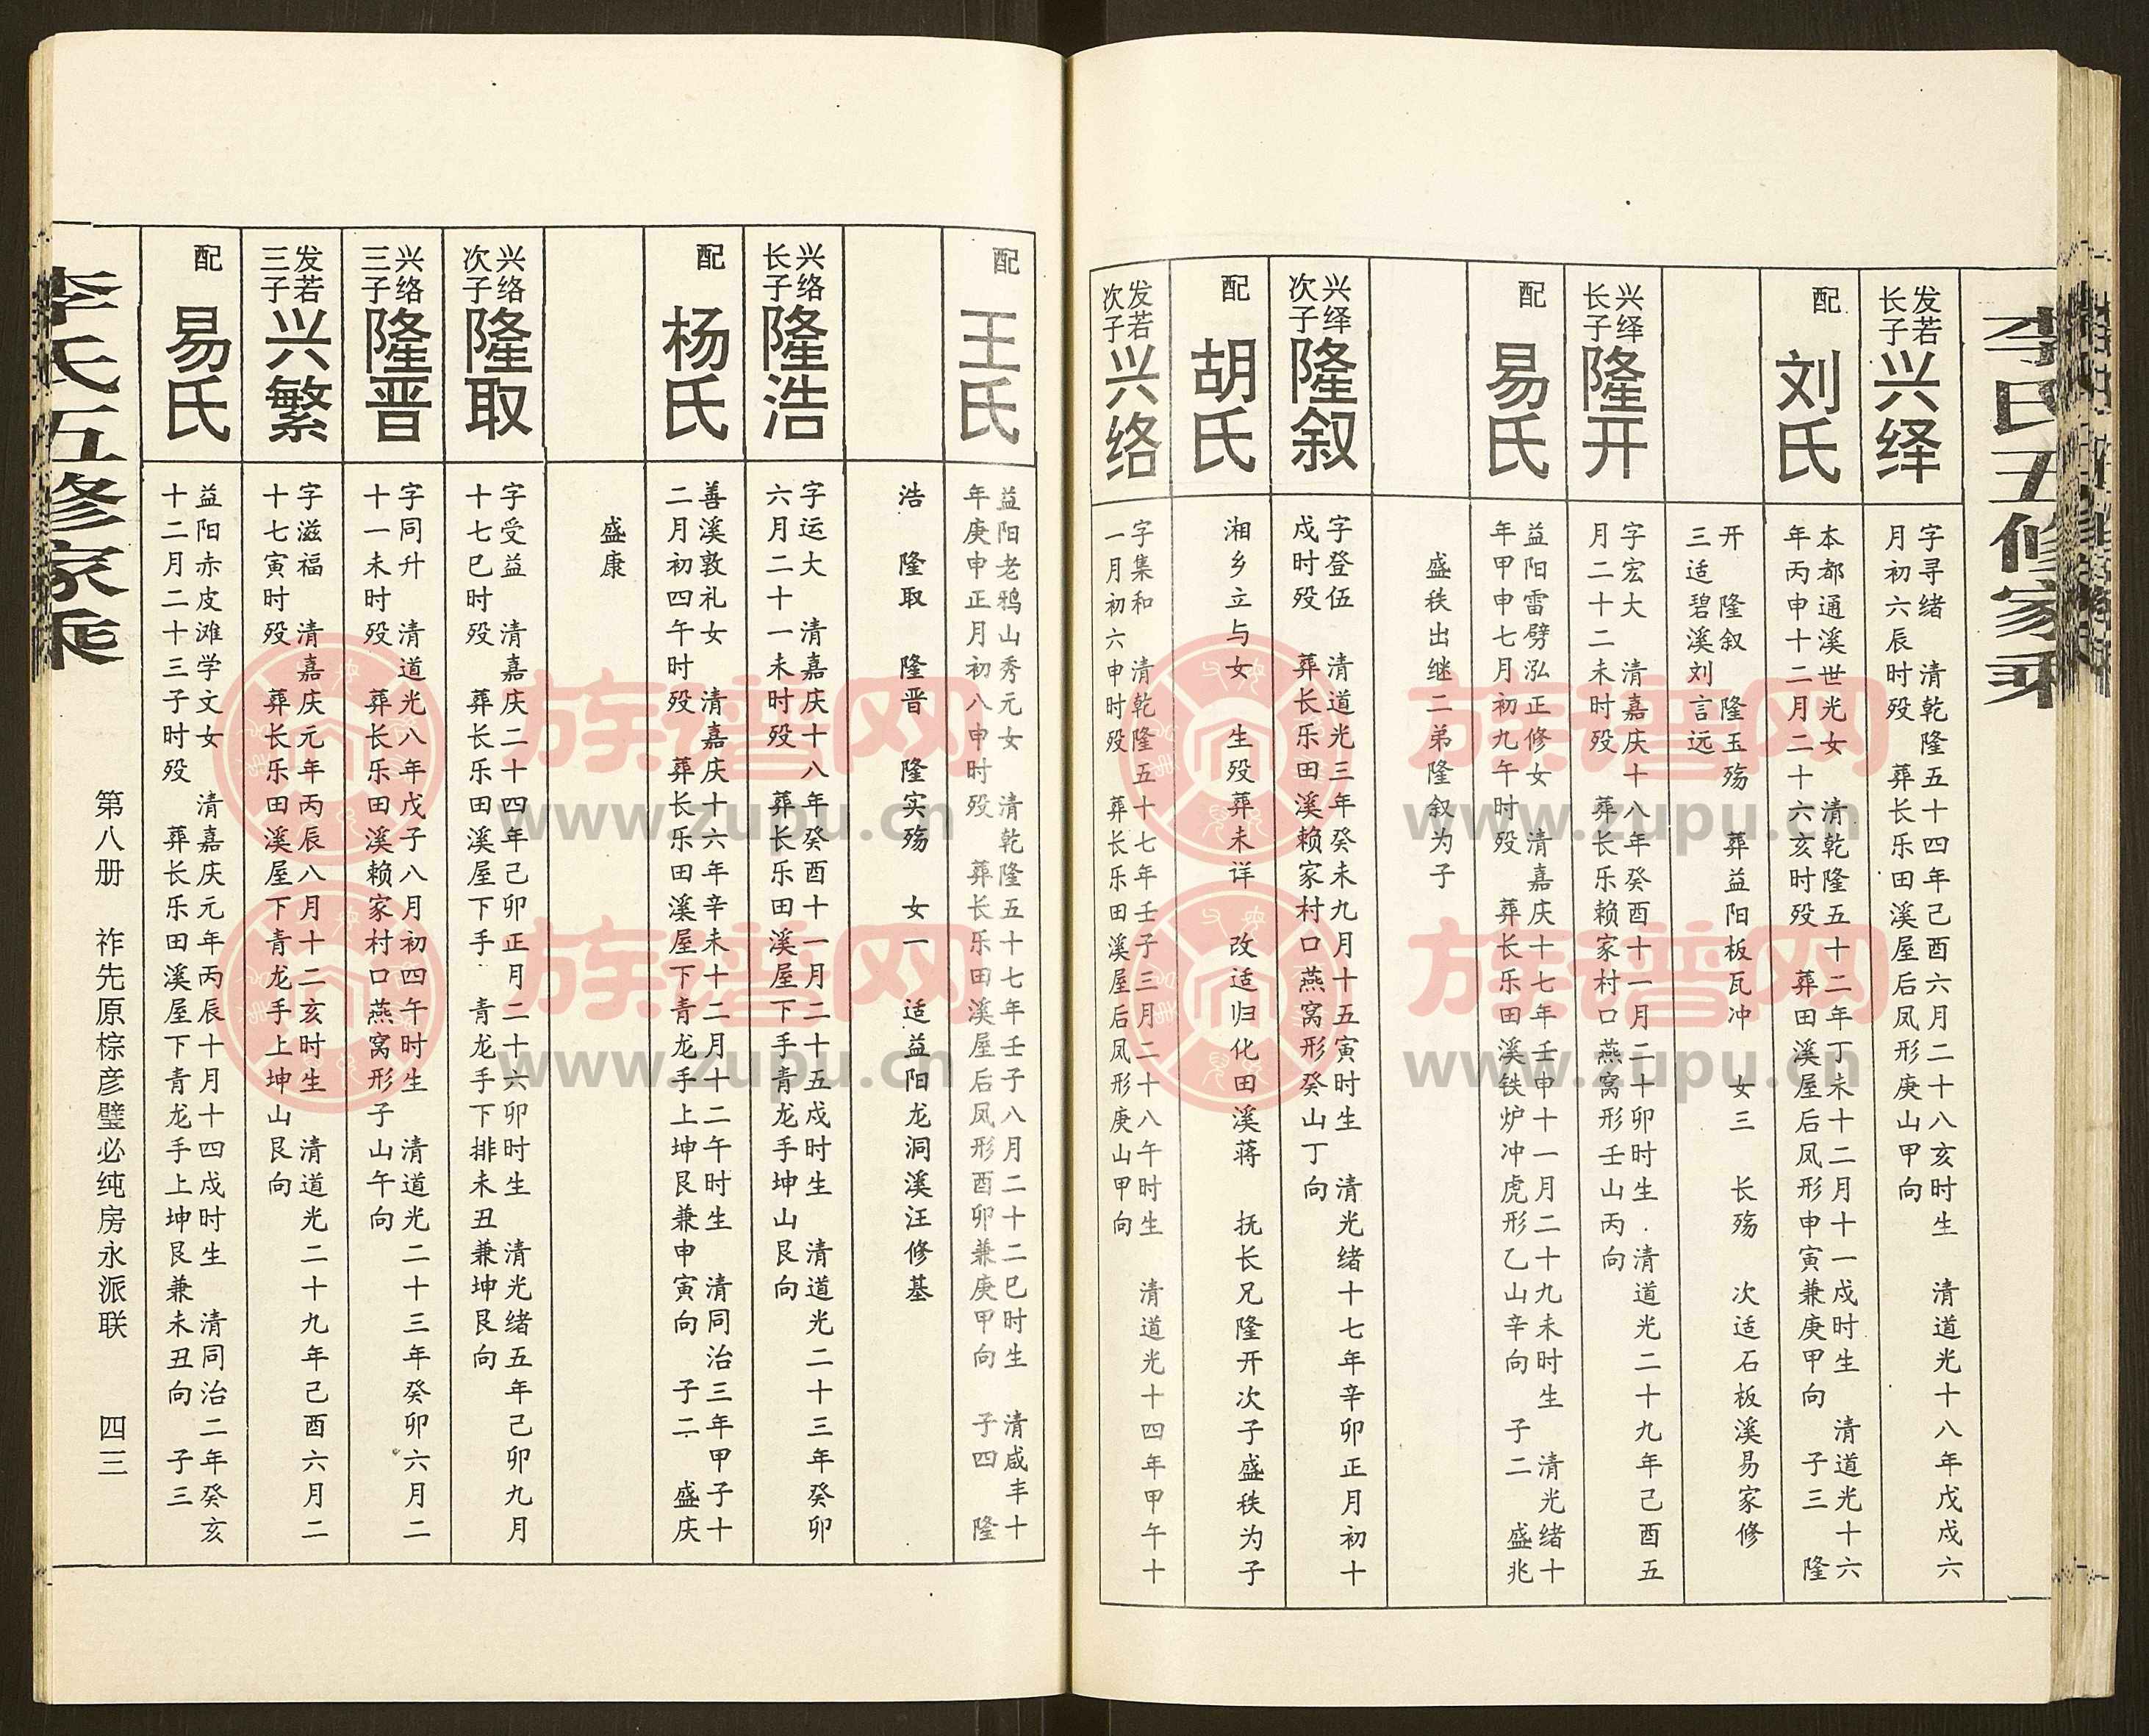 李氏五修家乘
发若
长子
兴绎
字寻绪　清乾隆五十四年己酉六月二十八亥时生　清道光十八年戊戌六
月初六辰时殁　葬长乐田溪屋后凤形庚山甲向
配
刘氏
本都通溪世光女　清乾隆五十二年丁未十二月十一戌时生　清道光十六
年丙申十二月二十六亥时殁　葬田溪屋后凤形申寅兼庚甲向　子三　隆
开　隆叙　隆玉殇　葬益阳板瓦冲　女三　长殇　次适石板溪易家修
三适碧溪刘言远
兴绎
长子
隆开
字宏大　清嘉庆十八年癸酉十一月二十卯时生　清道光二十九年己酉五
月二十二未时殁　葬长乐赖家村口燕窝形壬山丙向
配
易氏
益阳雷劈泓正修女　清嘉庆十七年壬申十一月二十九未时生　清光绪十
年甲申七月初九午时殁　葬长乐田溪铁炉冲虎形乙山辛向　子二　盛兆
盛秩出继二弟隆叙为子
兴绎
次子
隆叙
字登伍　清道光三年癸未九月十五寅时生　清光绪十七年辛卯正月初十
戌时殁　葬长乐田溪赖家村口燕窝形癸山丁向
配
胡氏
湘乡立与女　生殁葬未详　改适归化田溪蒋　抚长兄隆开次子盛秩为子
发若
次子
兴络
字集和　清乾隆五十七年壬子三月二十八午时生　清道光十四年甲午十
一月初六申时殁　葬长乐田溪屋后凤形庚山甲向
配
王氏
益阳老鸦山秀元女　清乾隆五十七年壬子八月二十二巳时生　清咸丰十
年庚申正月初八申时殁　葬长乐田溪屋后凤形酉卯兼庚甲向　子四　隆
浩　隆取　隆晋　隆实殇　女一　适益阳龙洞溪汪修基
兴络
长子
隆浩
字运大　清嘉庆十八年癸酉十一月二十五戌时生　清道光二十三年癸卯
六月二十一未时殁　葬长乐田溪屋下手青龙手坤山艮向
配
杨氏
善溪敦礼女　清嘉庆十六年辛未十二月十二午时生　清同治三年甲子十
二月初四午时殁　葬长乐田溪屋下青龙手上坤艮兼申寅向　子二　盛庆
盛康
兴络
次子
隆取
字受益　清嘉庆二十四年己卯正月二十六卯时生　清光绪五年己卯九月
十七巳时殁　葬长乐田溪屋下手　青龙手下排未丑兼坤艮向
兴络
三子
隆晋
字同升　清道光八年戊子八月初四午时生　清道光二十三年癸卯六月二
十一未时殁　葬长乐田溪赖家村口燕窝形子山午向
发若
三子
兴繁
字滋福　清嘉庆元年丙辰八月十二亥时生　清道光二十九年己酉六月二
十七寅时殁　葬长乐田溪屋下青龙手上坤山艮向
配
易氏
益阳赤皮滩学文女　清嘉庆元年丙辰十月十四戌时生　清同治二年癸亥
十二月二十三子时殁　葬长乐田溪屋下青龙手上坤艮兼未丑向　子三
李氏五修家乘
第八册　祚先原棕彦璧必纯房永派联　四三
族谱网
www.zupu.cn
族谱网
www.zupu.cn
族谱网
www.zupu.cn
族谱网
www.zupu.cn